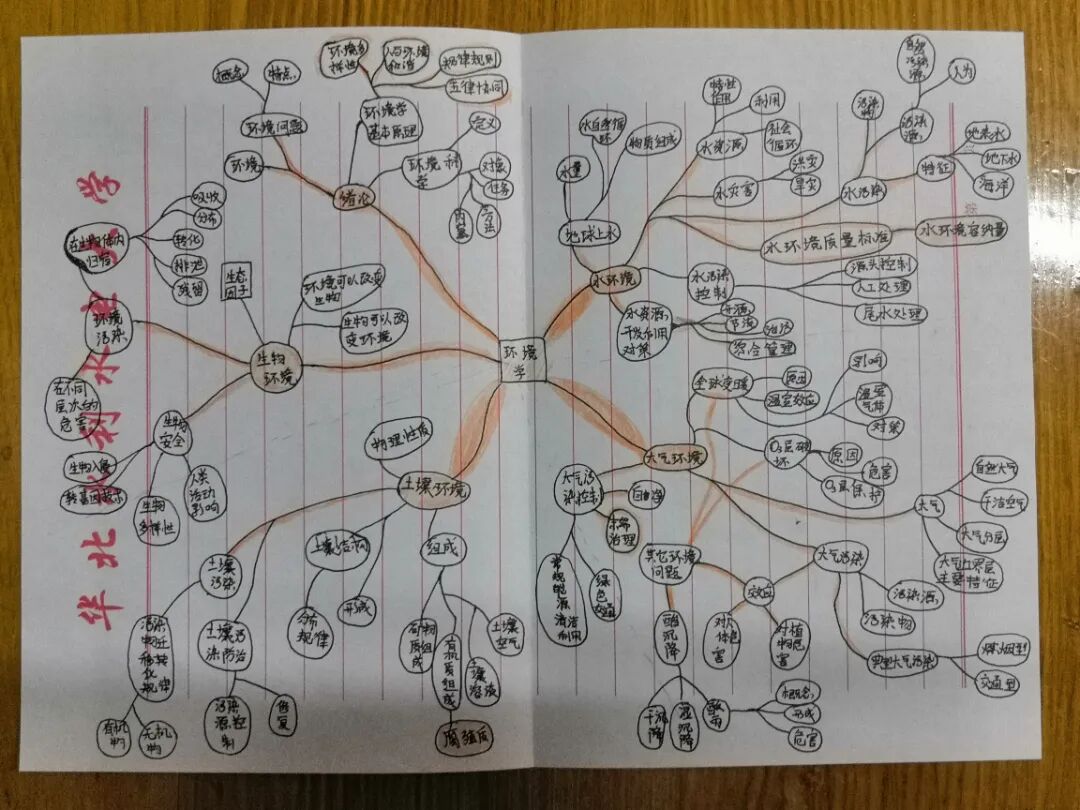 环境学
绪论
环境
环境问题
概念
特点
环境学
基本原理
环境多
样性
人与环境
和谐
规律规则
五律协同
环境科
学
定义
对象
任务
内容
方法
水环境
地球上水
水量
水自然循
环
物质组成
水资源
特性
作用
利用
社会
循环
水灾害
洪灾
旱灾
水污染
污染
物
污染
源
自然
污染
源
人为
特征
地表水
地下水
海洋
水环境质量标准
水环境容纳量
水污染
控制
源头控制
人工处理
尾水处理
水资源
开发利用
对策
开源
节流
治污
综合管理
大气环境
全球变暖
原因
温室效应
影响
温室
气体
对策
O₃层破
坏
原因
危害
O₃层保护
大气
自然大气
干洁空气
大气分层
大气边界层
主要特征
大气污染
污染源
污染物
典型大气污染
煤烟型
交通型
效应
对人
体危
害
对植
物危
害
其它环境
问题
酸
沉
降
干沉
降
湿
沉降
酸
雨
概念
形成
危害
大气污
染控制
自净
末端
治理
绿
色
交通
常规
能源
清洁
利用
土壤环境
物理性质
组成
矿物
质组
成
有机
质组
成
腐殖质
土壤
溶液
土壤
空气
土壤结构
分布
规律
形成
土壤污
染防治
污染
源控
制
修
复
土壤
污染
污染
物迁
移转
化
规律
有机
物
无机
物
生物
环境
生态
因子
环境可以改变
生物
生物可以改
变环境
环境
污染
在生物体内
归宿
吸收
分布
转化
排泄
残留
在不同
层次的
危害
生物
安全
生物入侵
转基因技术
生物
多样性
人类
活动
影响
华北水利水电大学